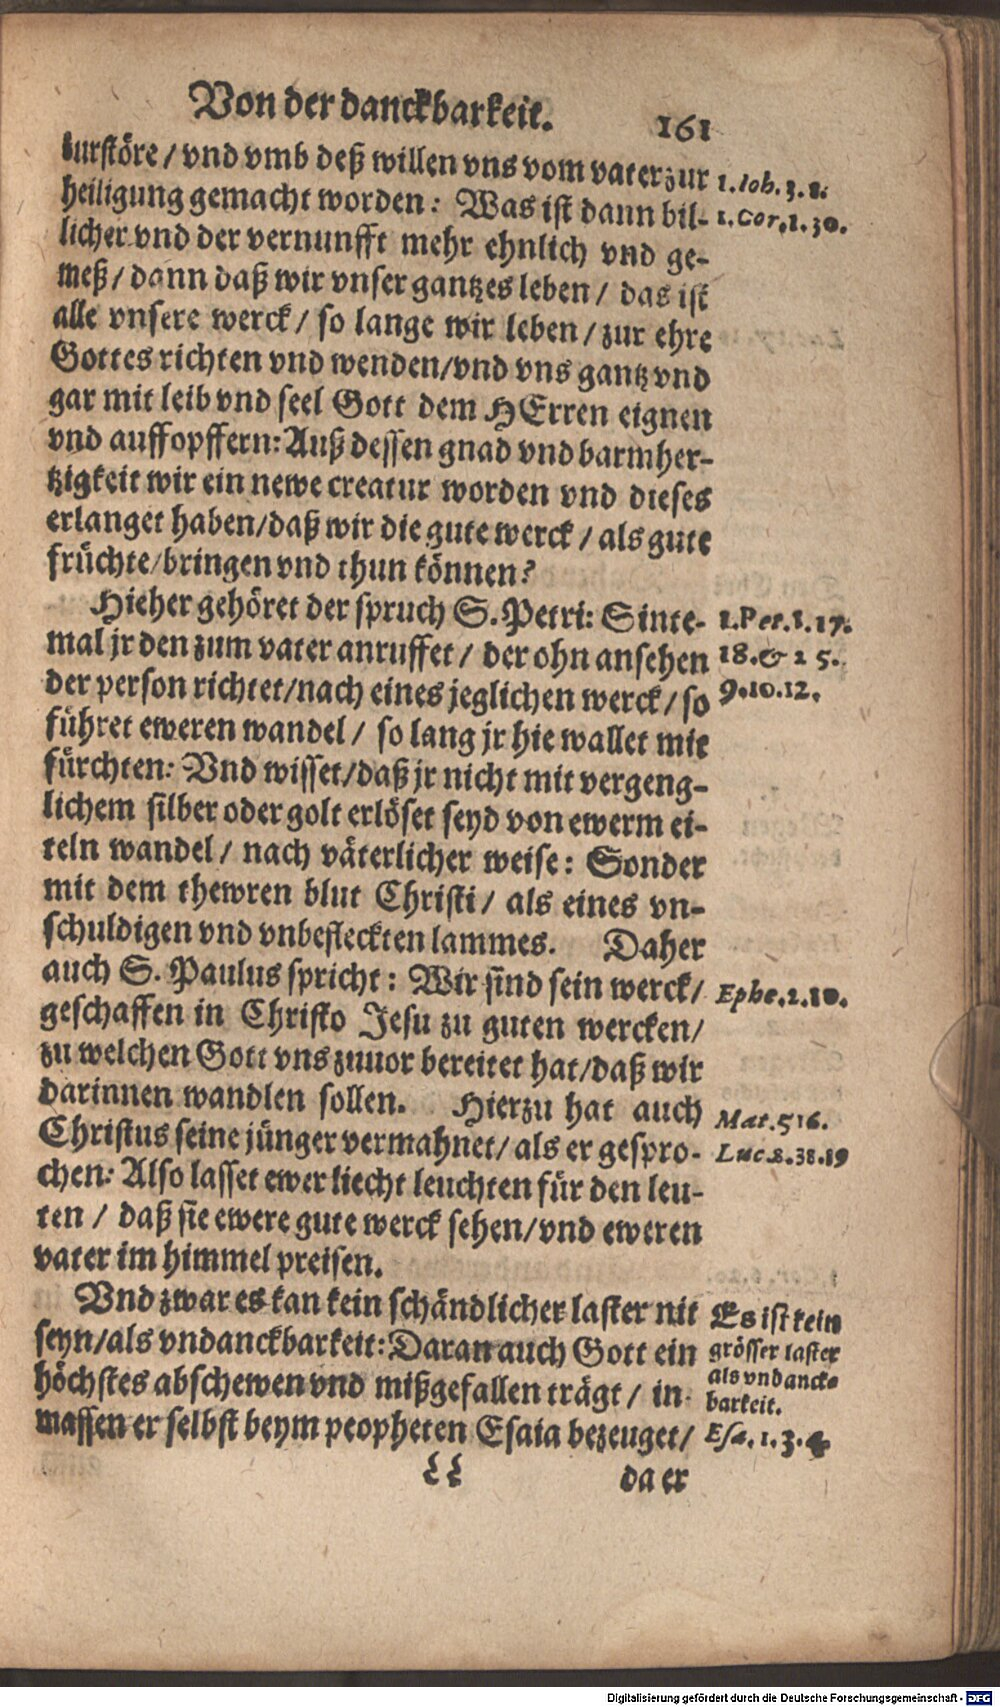 Von der danckbarkeit. 161
turstöre / vnd vmb deß willen vns vom vater zur
heiligung gemacht worden: Was ist dann bil-
licher vnd der vernunfft mehr ehnlich vnd ge-
meß / dann daß wir vnser gantzes leben / das ist
alle vnsere werck / so lange wir leben / zur ehre
Gottes richten vnd wenden/vnd vns gantz vnd
gar mit leib vnd seel Gott dem HErren eignen
vnd auffopffern: Auß dessen gnad vnd barmher-
tzigkeit wir ein newe creatur worden vnd dieses
erlanget haben/daß wir die gute werck / als gute
früchte/bringen vnd thun können?
Hieher gehöret der spruch S. Petri: Sinte-
mal jr den zum vater anruffet / der ohn ansehen
der person richtet/nach eines jeglichen werck / so
führet eweren wandel / so lang jr hie wallet mit
fürchten: Vnd wisset/daß jr nicht mit vergeng-
lichem silber oder golt erlöset seyd von ewerm ei-
teln wandel / nach väterlicher weise: Sonder
mit dem thewren blut Christi / als eines vn-
schuldigen vnd vnbefleckten lammes. Daher
auch S. Paulus spricht: Wir sind sein werck/
geschaffen in Christo Jesu zu guten wercken/
zu welchen Gott vns zuuor bereitet hat/daß wir
darinnen wandlen sollen. Hierzu hat auch
Christus seine jünger vermahnet/ als er gespro-
chen: Also lasset ewer liecht leuchten für den leu-
ten / daß sie ewere gute werck sehen/vnd eweren
vater im himmel preisen.
Vnd zwar es kan kein schändlicher laster nit
seyn/als vndanckbarkeit: Daran auch Gott ein
höchstes abschewen vnd mißgefallen trägt / in-
massen er selbst beym peopheten Esaia bezeuget/
LL da er
1. Ioh. 3. 8.
1. Cor. 1. 30.
1. Pet. 1. 17.
18. & 2 5.
9. 10. 12.
Ephe. 2. 10.
Mat. 5 16.
Luc 2. 38. 19
Es ist kein
grösser laster
als vndanck-
barkeit.
Esa. 1. 3. 4
Digitalisierung gefördert durch die Deutsche Forschungsgemeinschaft - DFG